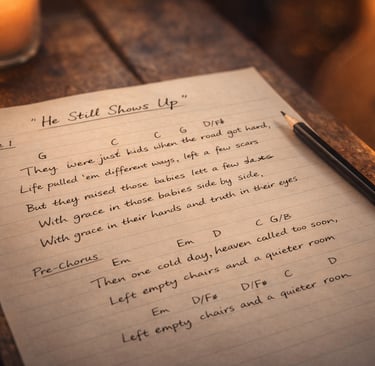 "He Still Shows Up"
1
G C C G D/F#
They were just kids when the road got hard,
Life pulled 'em different ways, left a few scars
But they raised those babies left a few
With grace in those babies side by side,
With grace in their hands and truth in their eyes
Pre-Chorus Em Em D C G/B
Then one cold day, heaven called too soon,
Left empty chairs and a quieter room
Em D/F# D/F# C D
Left empty chairs and a quieter room